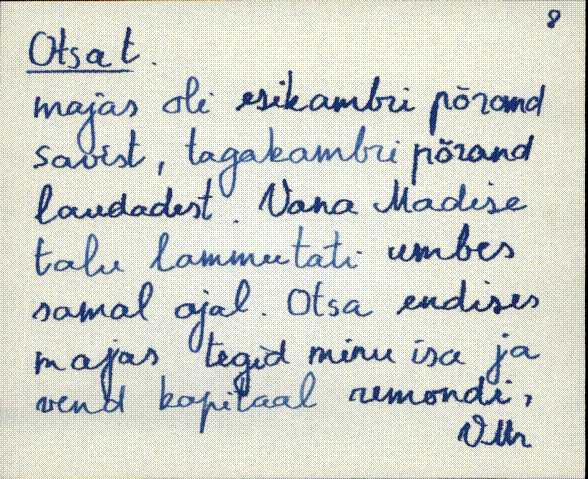 8
Otsa t.
majas oli esikambri põrand
savist, tagakambri põrand
laudadest. Vana Madise
talu lammutati umbes
samal ajal. Otsa endises
majas tegid minu isa ja
vend kapitaal remondi,